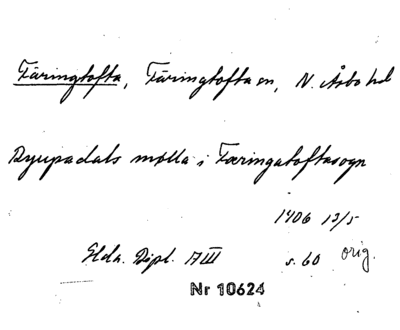 Färingtofta, Färingtofta sn, N. Åsbo hd
Dyupadals mølla i Færingatoftasogn
1406 13/5
Elda. Dipl. A III s. 60 orig.
Nr 10624